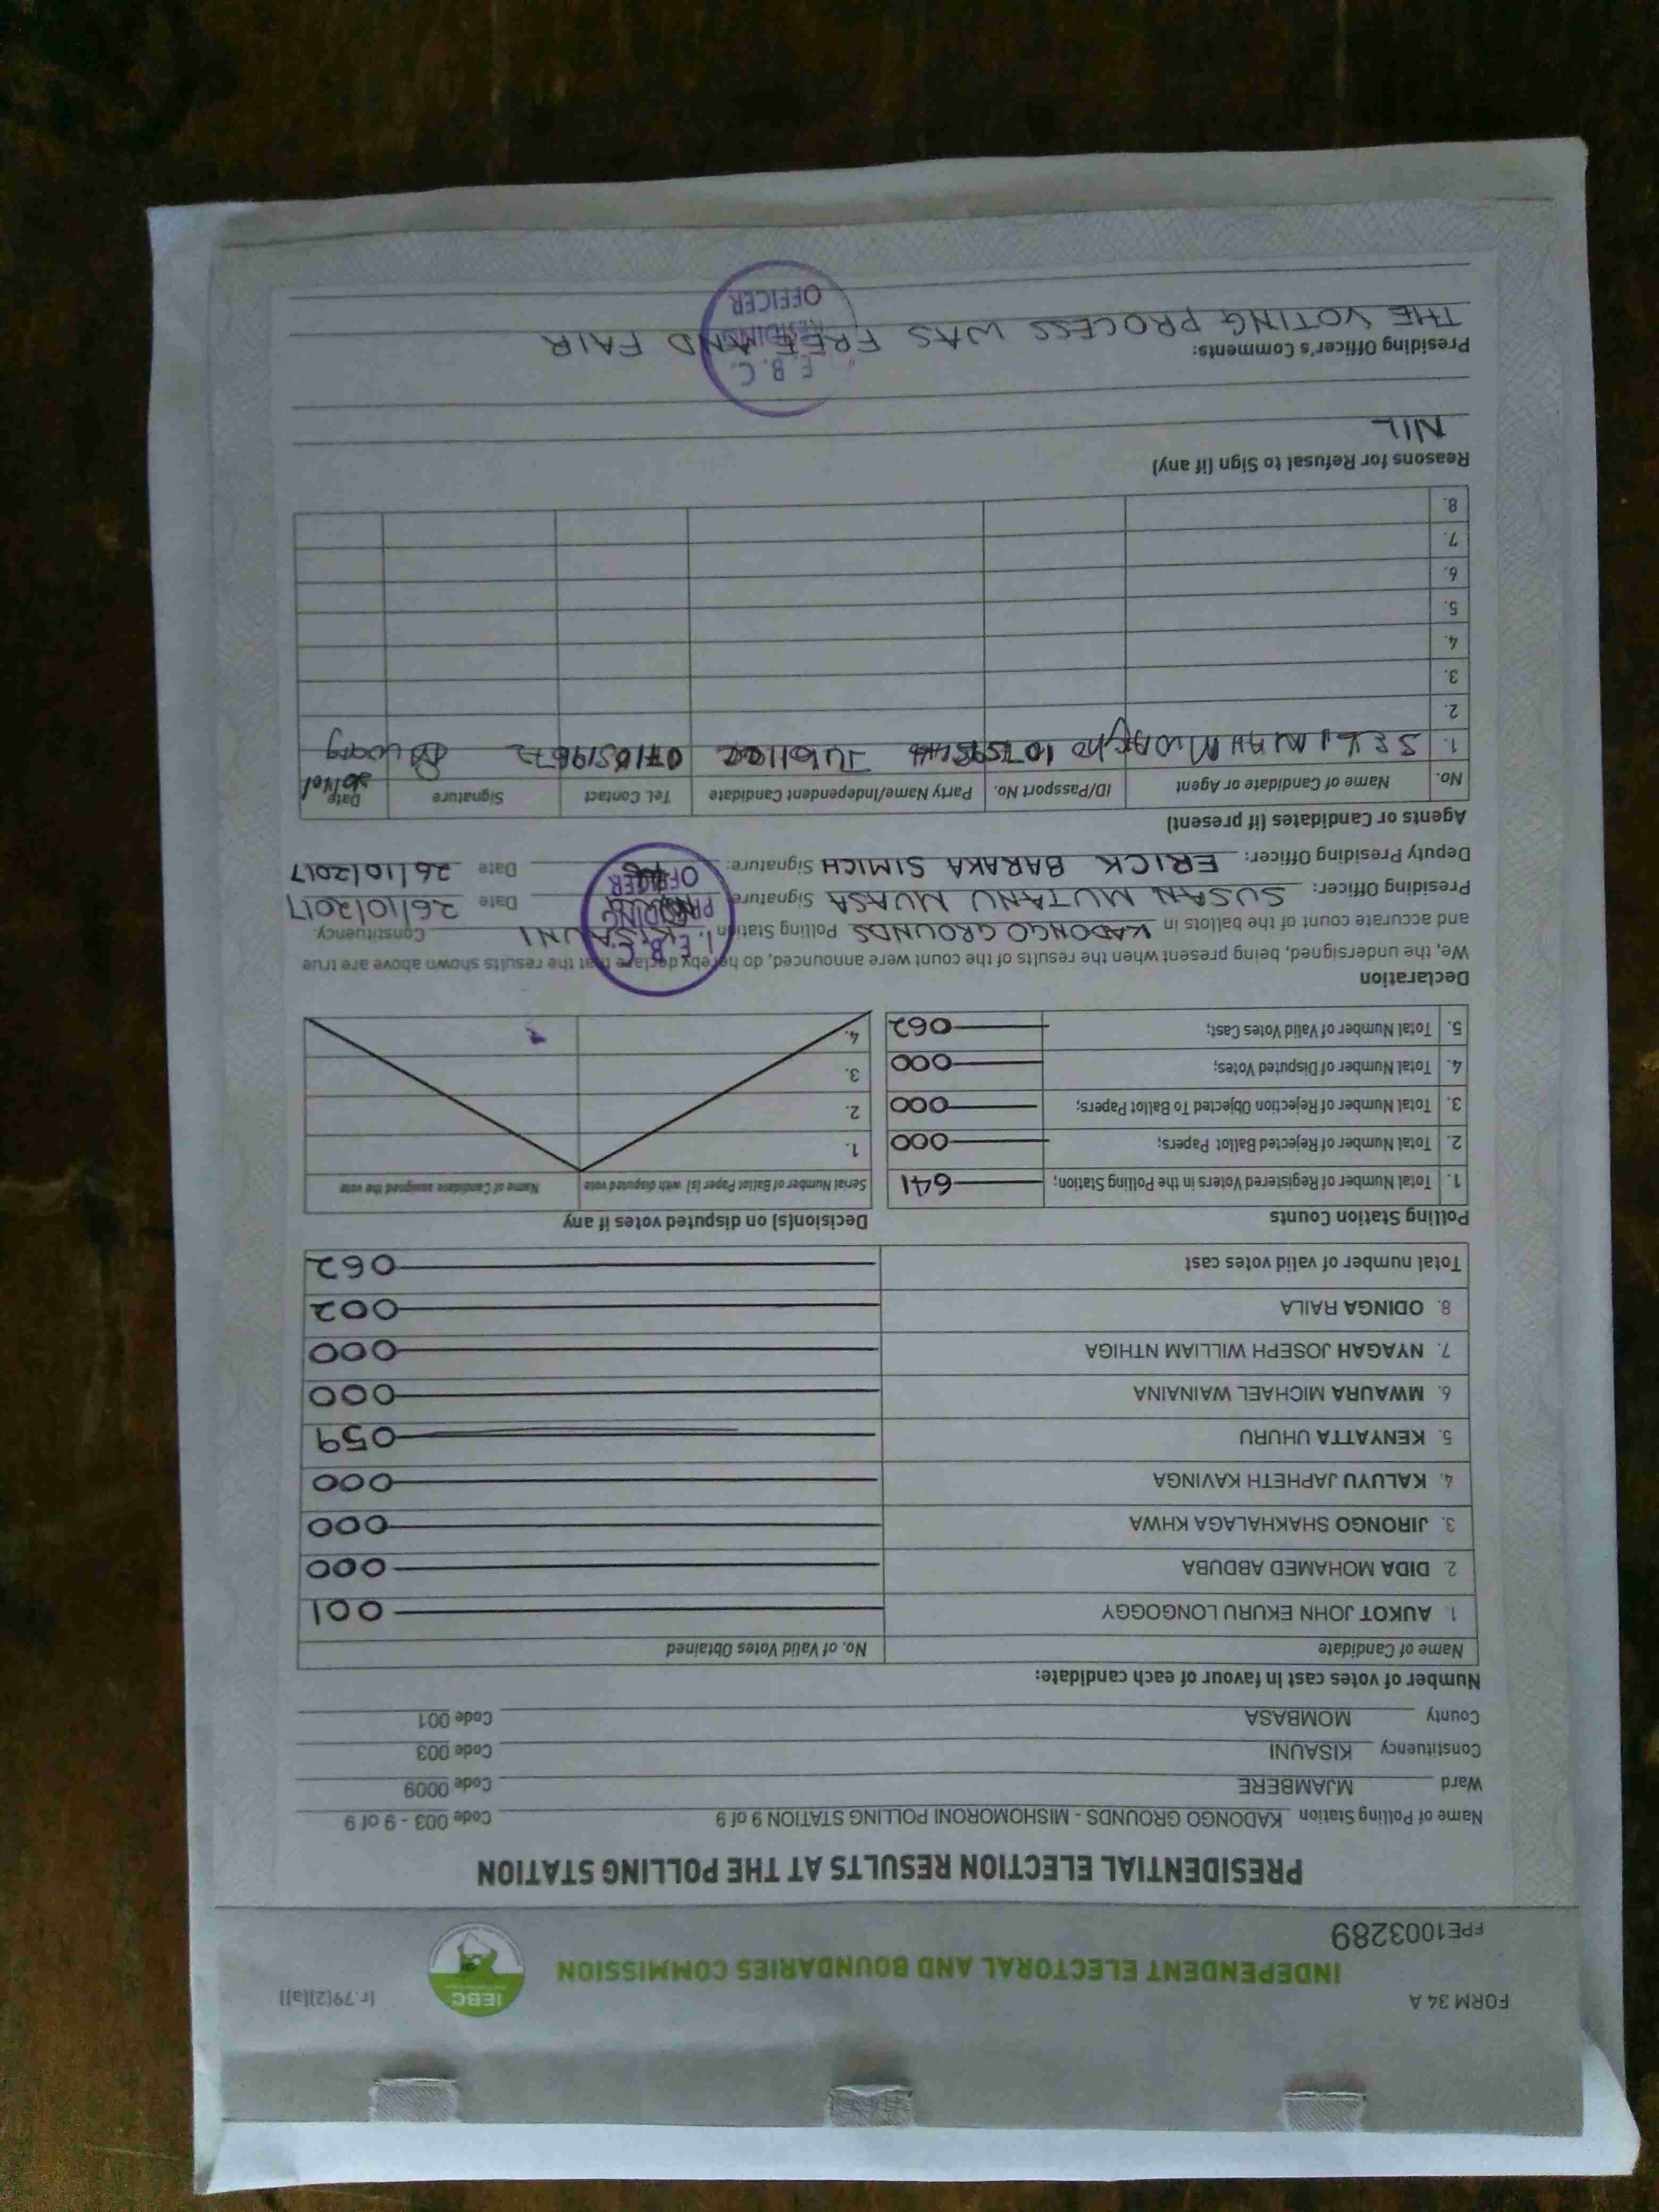 FORM 34 A
[r.79(2)(a)]
INDEPENDENT ELECTORAL AND BOUNDARIES COMMISSION
IEBC
FPE1003289
PRESIDENTIAL ELECTION RESULTS AT THE POLLING STATION
Name of Polling Station KADONGO GROUNDS - MISHOMORONI POLLING STATION 9 of 9 Code 003 - 9 of 9
Ward MJAMBERE Code 0009
Constituency KISAUNI Code 003
County MOMBASA Code 001
Number of votes cast in favour of each candidate:
Name of Candidate No. of Valid Votes Obtained
1. AUKOT JOHN EKURU LONGOGGY 001
2. DIDA MOHAMED ABDUBA 000
3. JIRONGO SHAKHALAGA KHWA 000
4. KALUYU JAPHETH KAVINGA 000
5. KENYATTA UHURU 059
6. MWAURA MICHAEL WAINAINA 000
7. NYAGAH JOSEPH WILLIAM NTHIGA 000
8. ODINGA RAILA 002
Total number of valid votes cast 062
Polling Station Counts
1. Total Number of Registered Voters in the Polling Station; 641
2. Total Number of Rejected Ballot Papers; 000
3. Total Number of Rejection Objected To Ballot Papers; 000
4. Total Number of Disputed Votes; 000
5. Total Number of Valid Votes Cast; 062
Decision(s) on disputed votes if any
Serial Number of Ballot Paper (s) with disputed vote Name of Candidate assigned the vote
1.
2.
3.
4.
Declaration
We, the undersigned, being present when the results of the count were announced, do hereby declare that the results shown above are true
and accurate count of the ballots in KADONGO GROUNDS Polling Station, KISAUNI Constituency.
Presiding Officer: SUSAN MUTANU MUASA Signature: Date 26/10/2017
Deputy Presiding Officer: ERICK BARAKA SIMICH Signature: Date 26/10/2017
I. E. B. C.
PRESIDING
OFFICER
Agents or Candidates (if present)
No. Name of Candidate or Agent ID/Passport No. Party Name/Independent Candidate Tel. Contact Signature Date
1. Jubilee
2.
3.
4.
5.
6.
7.
8.
Reasons for Refusal to Sign (if any)
NIL
Presiding Officer's Comments:
THE VOTING PROCESS WAS FREE AND FAIR
E. B. C.
PRESIDING
OFFICER